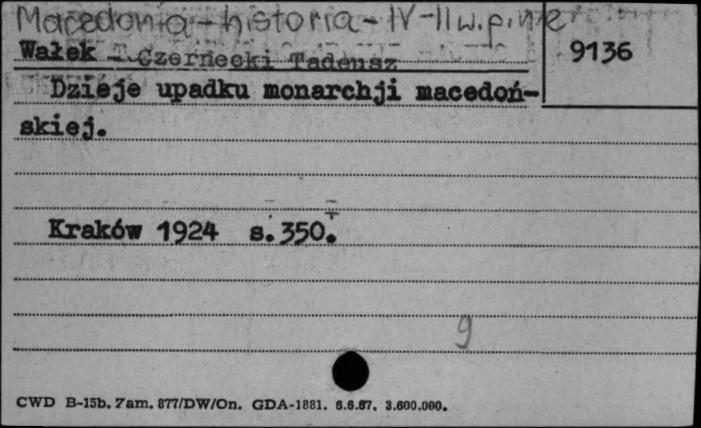 Macedonia - historia - IV-II w. p.n.e
Wałek - Czernecki Tadeusz
9136
Dzieje upadku monarchji macedoń-
skiej.
Kraków 1924 s.350.
9
CWD B-15b. Zam. 877/DW/On. GDA-1881. 6.6.67. 3.600.000.